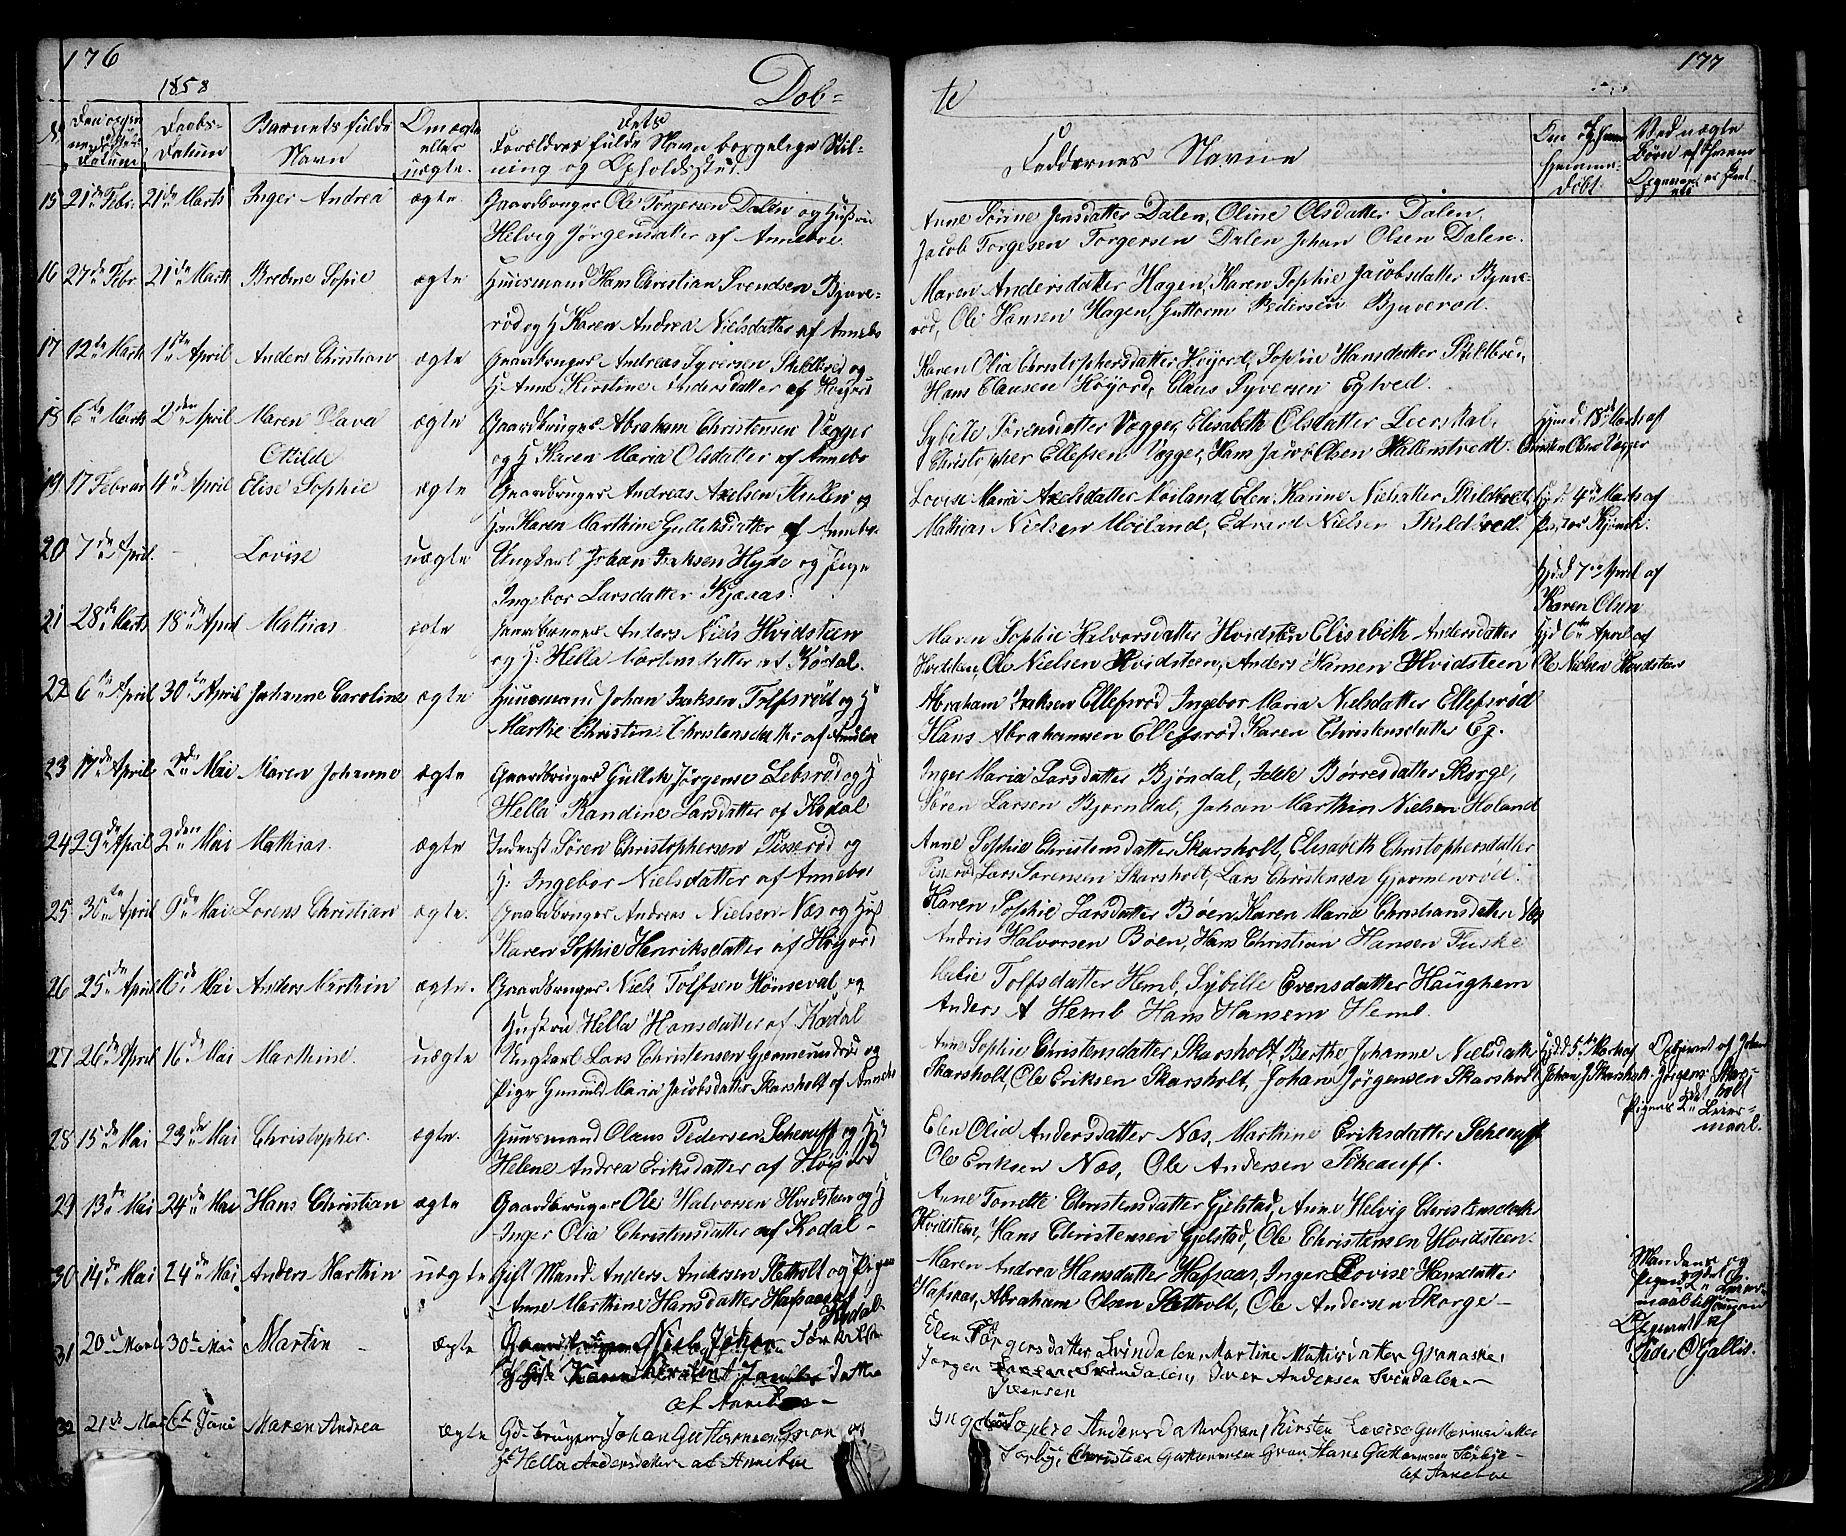 176
1858
Døb=
te
177
Barnets fulde
Navn
Om ægte
eller
uægte.
Forældres fulde Navn borgelige Stil=
ning og Opholdssted.
Faddernes Navne
15 21de Febr. 21de Marts Inger Andrea ægte Gaardbruger Ole Torgersen Dalen og Hustru
Helvig Jørgensdatter af Anneboe
Anne Sørine Jensdatter Dalen, Oline Olsdatter Dalen,
Jacob Torgesen Torgersen Dalen Johan Olsen Dalen.
16 27de Febr. 21de Marts Bredine Sofie ægte Huusmand Hans Christian Svendsen Bjuve=
rød og H Karen Andrea Nielsdatter af Annebo
Maren Andersdatter Hagen, Karen Sophie Jacobsdatter Bjuve=
rød, Ole Hansen Hagen, Guttorm Pedersen Bjuverød.
17 12te Marts 1ste April Anders Christian ægte Gaardbruger Andreas Syversen Skildbred og
H Anne Kirstine Andersdatter af Høijord
Karen Olia Christophersdatter Høijord, Sophie Hansdatter Skildbred,
Hans Clausen Høyord, Claus Syversen Eglved.
18 6te Marts 2den April Maren Olava
Ottilde ægte Gaardbruger Abraham Christensen Vegger
og H Karen Maria Olsdatter af Annebo
Sybille Sørensdatter Vegger, Elisabeth Olsdatter Leerskal,
Christopher Ellefsen Vegger, Hans Jacob Olsen Hallenstvedt.
Hjmd. 18de Marts af
Christen Olsen Vegger
19 17 Februar 4de April Elise Sophie ægte Gaardbruger Andreas Axelsen og
Karen Marthine Gulliksdatter af Annebo
Lovise Maria Axelsdatter Moiland, Elen Karine Nielsdatter
Mathias Nielsen Moiland, Edvard Nielsen
4de Marts af
20 7de April - Lovise uægte Ungkarl Johan Isaksen Hyde og Pige
Ingebor Larsdatter Kjæraas.
Hjd 7de April af
Karen Olsen
21 28de Marts 18de April Mathias ægte Gaardbruger Anders Niels Hvidsteen
og H: Hella Mortensdatter af Kodal.
Maren Sophie Halvorsdatter Hvidsten Elisabeth Andersdatter
Hvidsten, Ole Nielsen Hvidsteen, Anders Hansen Hvidsteen
Hjd 6te April af
Ole Nielsen Hvidsteen
22 6te April 30te April Johanne Caroline ægte Huusmand Johan Isaksen Tolfsrød og H
Marthe Christine Christensdatter af Andebu
Abraham Isaksen Ellefsrød Ingebor Maria Nielsdatter Ellefsrød
Hans Abrahamsen Ellefsrød Karen Christensdatter Eg.
23 17de April 2den Mai Maren Johanne ægte Gaardbruger Gullik Jørgensen Lebsrød og H
Hella Randine Larsdatter af Kodal
Inger Maria Larsdatter Bjøndal, Idde Børresdatter Skorge,
Søren Larsen Bjørndal, Johan Marthin Nielsen Holand
24 29de April 2den Mai Mathias ægte Inderst Søren Christophersen Tisserød og
H: Ingebor Nielsdatter af Annebo
Anne Sophie Christensdatter Skarsholt, Elisabeth Christophersdatter
Lars Sørensen Skarsholt, Lars Christensen Gjermenrød.
25 30te April 9de Mai Lorens Christian ægte. Gaardbruger Andreas Nielsen Næs og Hust
Karen Sophie Henriksdatter af Høijord
Karen Sophie Larsdatter Bøen, Karen Maria Christiansdatter Næs
Andris Halvorsen Bøen, Hans Christian Hansen Fuske
26 25de April Mai Anders Marthin ægte. Gaardbruger Niels Tolfsen Hønseval og
Hustru Hella Hansdatter af Kodal
Malie Tolfsdatter Hemb, Sybille Evensdatter Haughem
Anders A Hemb Hans Hansen Hemb.
27 26de April 16de Mai Marthine. uægte Ungkarl Lars Christensen Gjermundrød og
Pige Gunnild Maria Jacobsdatter Skarsholt af Annebo
Anne Sophie Christensdatter Skarsholt, Berthe Johanne Nielsdatter
Skarsholt, Ole Eriksen Skarsholt, Johan Jørgensen Skarsholt
Johan J Skarsholt.
Opgivet af Johan
Jørgens. Skars=
holt
Pigens 2det Leier=
maal.
28 15de Mai 23de Mai Christopher. ægte. Huusmand Olaus Pedersen Scheauff og H
Helene Andrea Eriksdatter af Høijord
Elen Olia Andersdatter Næs, Marthine Eriksdatter Scheauff
Ole Eriksen Næs, Ole Andersen Scheauff.
29 13de Mai 24de Mai Hans Christian ægte Gaardbruger Ole Halvorsen Hvidsteen og H
Inger Olia Christensdatter af Kodal -
Anne Tonette Christensdatter Gjelstad, Anne Helvig Christensdatter
Hvidsteen, Hans Christensen Gjelstad, Ole Christensen Hvidsteen.
30 14de Mai 24de Mai Anders Marthin uægte Gift Mand Anders Andersen Sletholt og Pigen
Anne Marthine Hansdatter Hafsaas af
Kodal
Maren Andrea Hansdatter Hafsaas, Inger Lovise Hansdatter
Hafsaas, Abraham Olsen Sletholt, Ole Andersen Skorge -
Mandens og
Pigens 2det Leier=
maal tilsammen
Opgivet af
Peder O Gallis.
31 20de Marts 30te Mai Martin - ægte
af Annebo -
Elen Jørgensdatter Svindalen, Martine Mathisdatter Granaske,
Jørgen Svindalen, Iver Andersen Svindalen -
Svensen
32 21de Mai 6te Juni Maren Andrea ægte Gd-bruger Johan Guttormsen Gran og
H Hella Andersdatter af Annebu
Sophie Andersdatter Gran, Kirsten Lovise Guttormsdatter
Sørby, Christian Guttormsen Gran, Hans Guttormsen Sørbye -
af Annebue